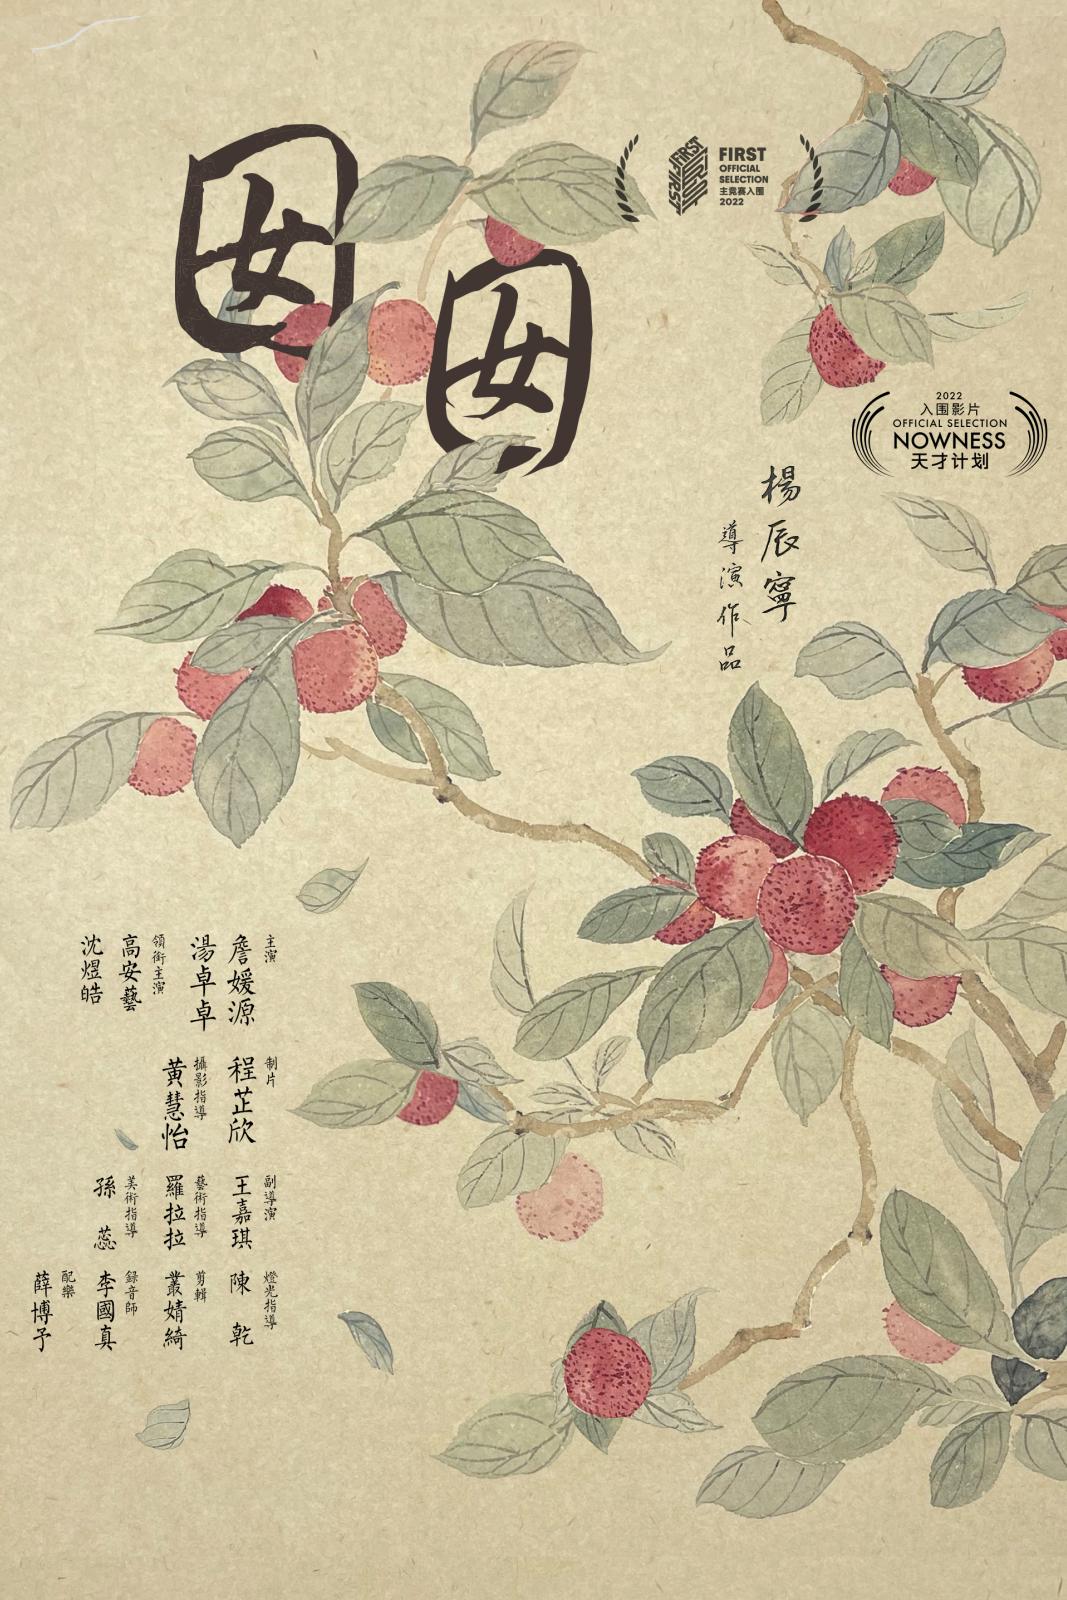 囡
囡
FIRST
OFFICIAL
SELECTION
主竞赛入围
2022
2022
入围影片
OFFICIAL SELECTION
NOWNESS
天才计划
楊辰寧
導演作品
主演
詹媛源
湯卓卓
領銜主演
高安藝
沈煜皓
制片
程芷欣
攝影指導
黃慧怡
副導演
王嘉琪
藝術指導
羅拉拉
美術指導
孫蕊
燈光指導
陳乾
剪輯
叢婧綺
録音師
李國真
配樂
薛博予